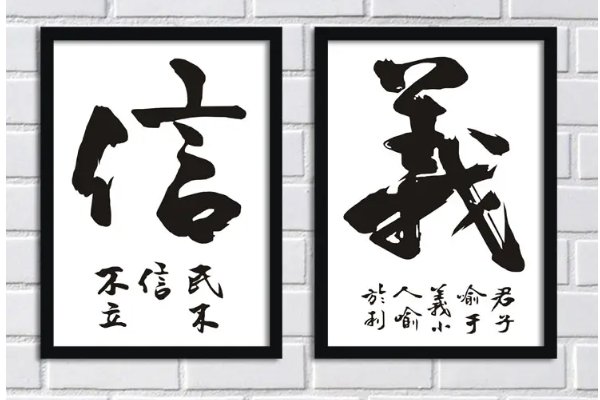 信
民不
信
不立
義
君子
喻于
義小
人喻
於利